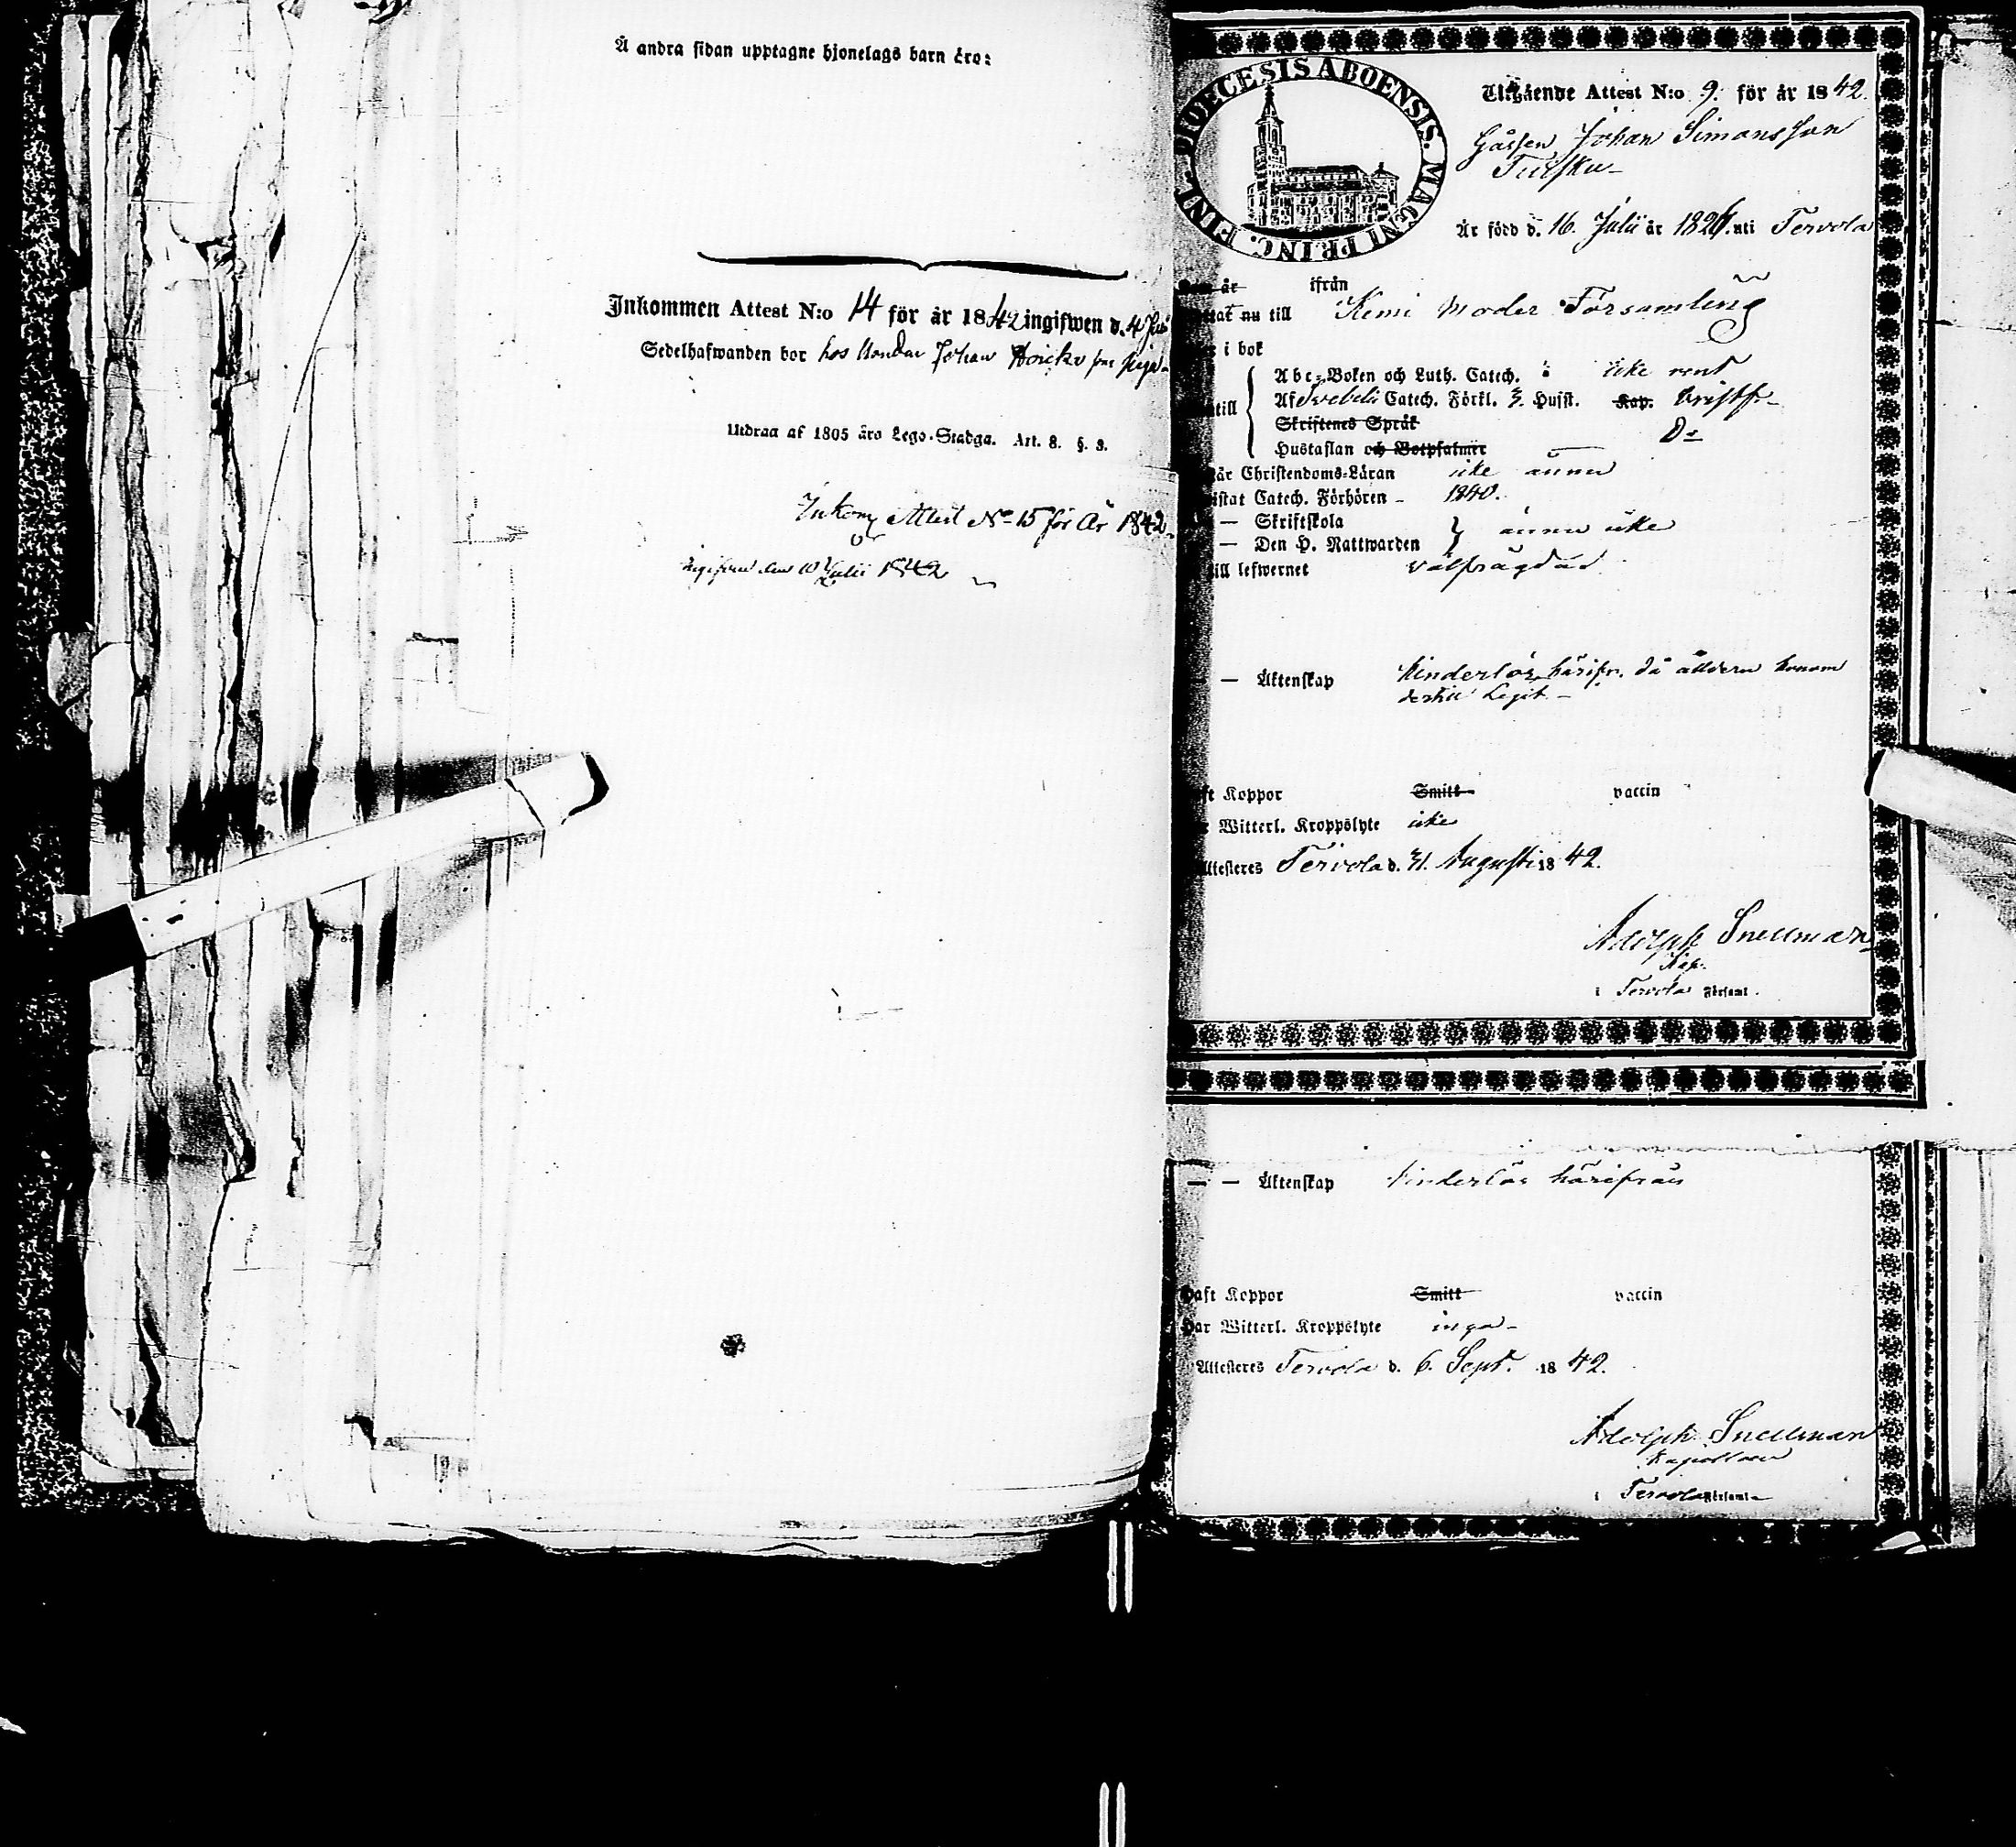 Å andra sidan upptagne hjonelags barn äro:
Inkommen Attest N:o 14 för år 1842 ingifwen d. 4
Sedelhafwanden bor hos Bonden Johan
Utdrag af 1805 års Lego-Stadga. Art. 8. §. 3.
Inkom Attest No 15 för År 1842
ingifven den 10 Julii 1842
DIOECESIS ABOENSIS. MAGNI PRINC. FINL.
Utgående Attest N:o 9. för år 1842.
Gåssen Johan Simonsson
Är född d. 16. Julii år 1826. uti Tervola
är ifrån
nu till Kemi Moder Församling
i bok
Abc-Boken och Luth. Catech. icke rent
till Af Svebelii Catech. Förkl. 3. Hufst. Kap. bristf.
Skriftenes Språk
Hustaflan och Botpsalmer Do
Christendoms-Läran icke ännu
Catech. Förhören 1840.
— Skriftskola
— Den H. Nattwarden } ännu icke
till lefwernet välfrägdad
— Äktenskap hinderlös härifr. då åldern honom
dertill Legit.
Koppor Smitt vaccin
Witterl. Kroppslyte icke
Attesteres Tervola d. 31. Augusti 1842.
Adolph Snellman
Kap.
i Tervola Församl.
— — Äktenskap hinderlös härifrån
Haft Koppor Smitt vaccin
Har Witterl. Kroppslyte inga
Attesteres Tervola d. 6. Sept. 1842.
Adolph Snellman
Kapellan
i Tervola Församl.